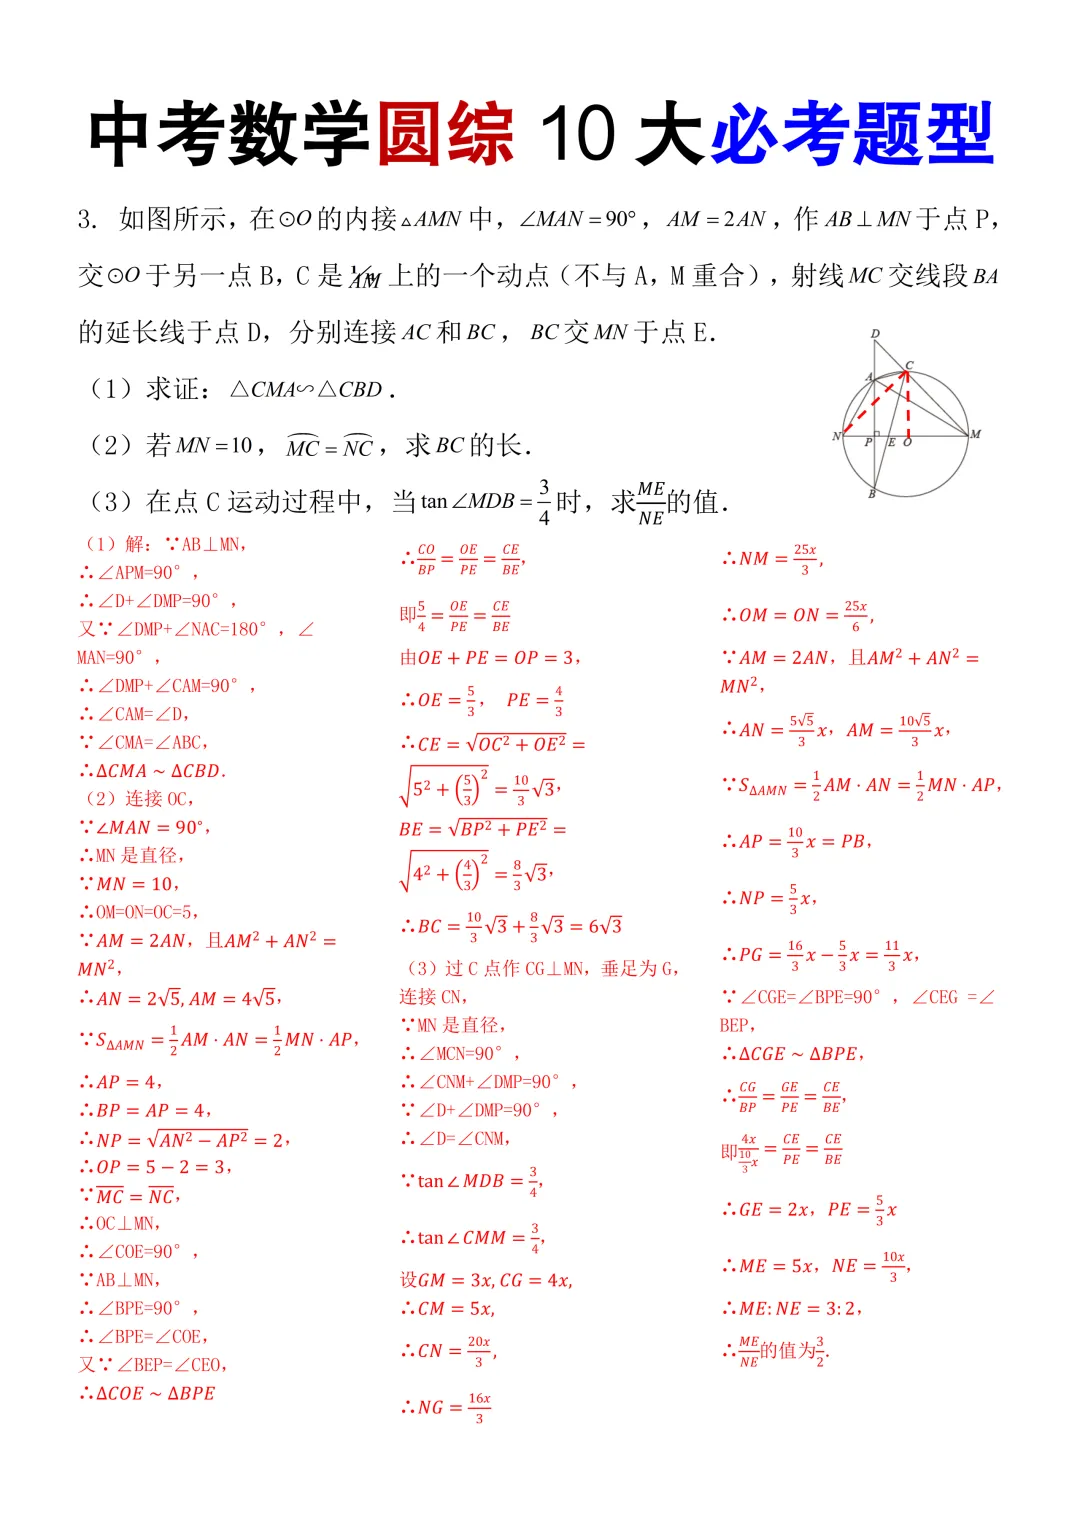 中考数学圆综 10 大必考题型
3. 如图所示，在⊙O的内接△AMN中，∠MAN=90°，AM=2AN，作AB⊥MN于点P，
交⊙O于另一点B，C是AM上的一个动点（不与A，M重合），射线MC交线段BA
的延长线于点D，分别连接AC和BC，BC交MN于点E．
（1）求证：△CMA∽△CBD．
（2）若MN=10，\overset{⌒}{MC}=\overset{⌒}{NC}，求BC的长．
（3）在点C运动过程中，当tan∠MDB=\frac{3}{4}时，求\frac{ME}{NE}的值．
D
C
A
N
P
E
O
M
B
（1）解：∵AB⊥MN，
∴∠APM=90°，
∴∠D+∠DMP=90°，
又∵∠DMP+∠NAC=180°，∠
MAN=90°，
∴∠DMP+∠CAM=90°，
∴∠CAM=∠D，
∵∠CMA=∠ABC，
∴ΔCMA ~ ΔCBD．
（2）连接OC，
∵∠MAN = 90°，
∴MN是直径，
∵MN = 10，
∴OM=ON=OC=5，
∵AM = 2AN，且AM² + AN² =
MN²，
∴AN = 2√5, AM = 4√5，
∵S_{ΔAMN} = \frac{1}{2}AM·AN = \frac{1}{2}MN·AP，
∴AP = 4，
∴BP = AP = 4，
∴NP = \sqrt{AN² − AP²} = 2，
∴OP = 5 − 2 = 3，
∵\overline{MC} = \overline{NC}，
∴OC⊥MN，
∴∠COE=90°，
∵AB⊥MN，
∴∠BPE=90°，
∴∠BPE=∠COE，
又∵∠BEP=∠CEO，
∴ΔCOE ~ ΔBPE
∴\frac{CO}{BP} = \frac{OE}{PE} = \frac{CE}{BE}，
即\frac{5}{4} = \frac{OE}{PE} = \frac{CE}{BE}
由OE + PE = OP = 3，
∴OE = \frac{5}{3}， PE = \frac{4}{3}
∴CE = \sqrt{OC² + OE²} =
\sqrt{5² + (\frac{5}{3})²} = \frac{10}{3}√3，
BE = \sqrt{BP² + PE²} =
\sqrt{4² + (\frac{4}{3})²} = \frac{8}{3}√3，
∴BC = \frac{10}{3}√3 + \frac{8}{3}√3 = 6√3
（3）过C点作CG⊥MN，垂足为G，
连接CN，
∵MN是直径，
∴∠MCN=90°，
∴∠CNM+∠DMP=90°，
∵∠D+∠DMP=90°，
∴∠D=∠CNM，
∵tan∠MDB = \frac{3}{4}，
∴tan∠CMM = \frac{3}{4}，
设GM = 3x, CG = 4x，
∴CM = 5x，
∴CN = \frac{20x}{3}，
∴NG = \frac{16x}{3}
∴NM = \frac{25x}{3}，
∴OM = ON = \frac{25x}{6}，
∵AM = 2AN，且AM² + AN² =
MN²，
∴AN = \frac{5√5}{3}x，AM = \frac{10√5}{3}x，
∵S_{ΔAMN} = \frac{1}{2}AM·AN = \frac{1}{2}MN·AP，
∴AP = \frac{10}{3}x = PB，
∴NP = \frac{5}{3}x，
∴PG = \frac{16}{3}x − \frac{5}{3}x = \frac{11}{3}x，
∵∠CGE=∠BPE=90°，∠CEG =∠
BEP，
∴ΔCGE ~ ΔBPE，
∴\frac{CG}{BP} = \frac{GE}{PE} = \frac{CE}{BE}，
即\frac{4x}{\frac{10}{3}x} = \frac{CE}{PE} = \frac{CE}{BE}
∴GE = 2x，PE = \frac{5}{3}x
∴ME = 5x，NE = \frac{10x}{3}，
∴ME: NE = 3: 2，
∴\frac{ME}{NE}的值为\frac{3}{2}．